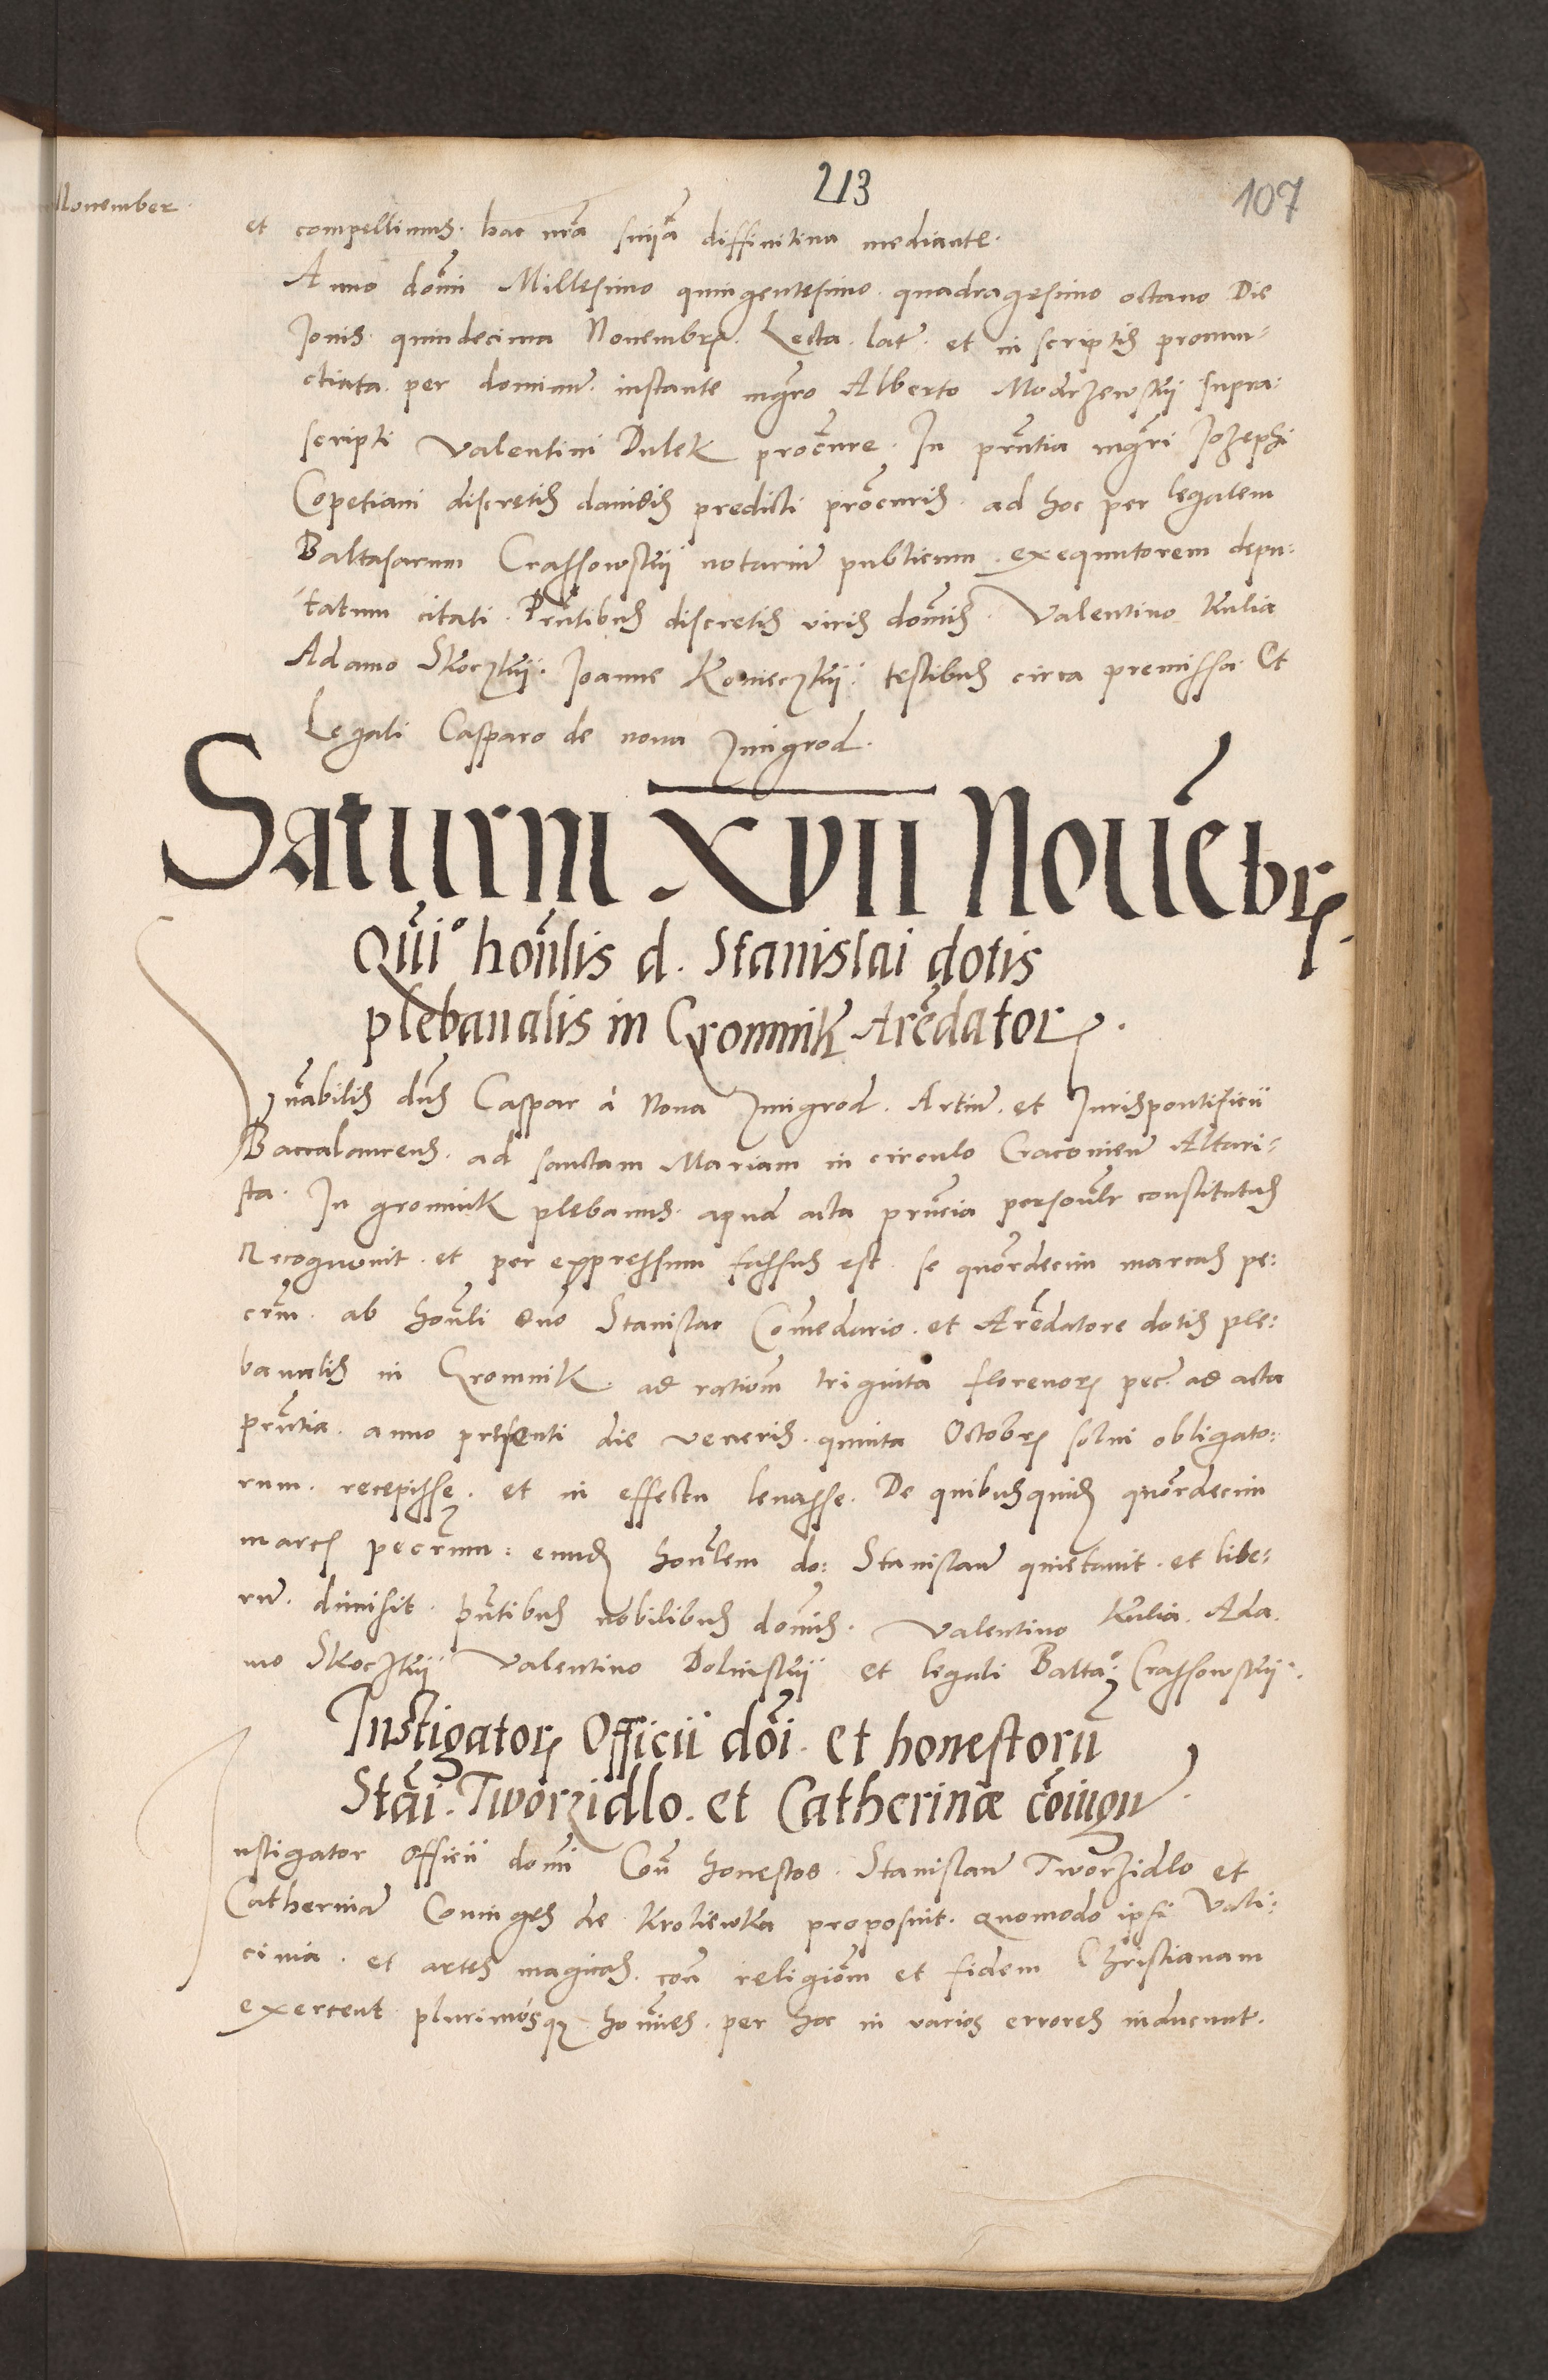 213
107
November
et compellimus. hac nr̃a sniã diffinitiva mediante.
Anno domĩ Millesimo quingentesimo quadragesimo octavo Die
Jovis quindecima Novembr. Lecta. lat. et in scriptis pronun-
ctiata. per dominũ. instante mgr̃o Alberto Modrzewskij supra:
scripti Valentini Dulek procure. In pñtia mgr̃i Jozephi
Copetiani discretis davidis predicti procuris. ad hoc per legalem
Baltasarum Crassowskij notariũ publicum. exequutorem depu:
tatum citati. Pñtibus discretis viris domis. Valentino Kulia
Adamo Skoczkij. Joanne Konieczkij: testibus circa premissa. Et
Legali Casparo de nova Zmigrod.
Saturni XVII Novẽbr.
Qui° honlis d. Stanislai dotis
plebanalis in Gromnik Arẽdator.
Vnabilis dns Caspar à Nova Zmigrod. Artiũ. et Jurispontificii
Baccalaureus. ad sanctam Mariam in circulo Cracovien Altari-
sta. In gromnik plebanus. apud acta pñcia personlr constitutus
Recognovit. et per expressum fassus est. se quordecim marcas pe:
crm. ab honli dno Stanislao Comẽdario. et Arẽdatore dotis ple:
banalis in Gromnik. ad rationm triginta florenor pec. ad acta
pñtia. anno presenti die veneris. quinta Octobr solvi obligato:
rum. recepisse. et in effectu levasse. De quibusquid quordecim
marc pecrum: eund honlem do: Stanislaũ quietavit. et libe-
rũ. dimisit. pñtibus nobilibus domis. Valentino Kulia. Ada.
mo Skoczkij Valentino Dolinskij et legali Balta: Crassowskij.
Instigator Officii dõi. et honestorũ
Stãi. Tworzidlo. et Catherinæ cõiugũ.
Instigator officii domĩ Con honestos. Stanislaũ Tworzidlo et
Catherinã Coniuges de Kroliewka proposuit. quomodo ipsi Vati:
cinia. et artes magicas. con religiom et fidem Christianam
exercent plurimósq homies. per hoc in varios errores inducunt.